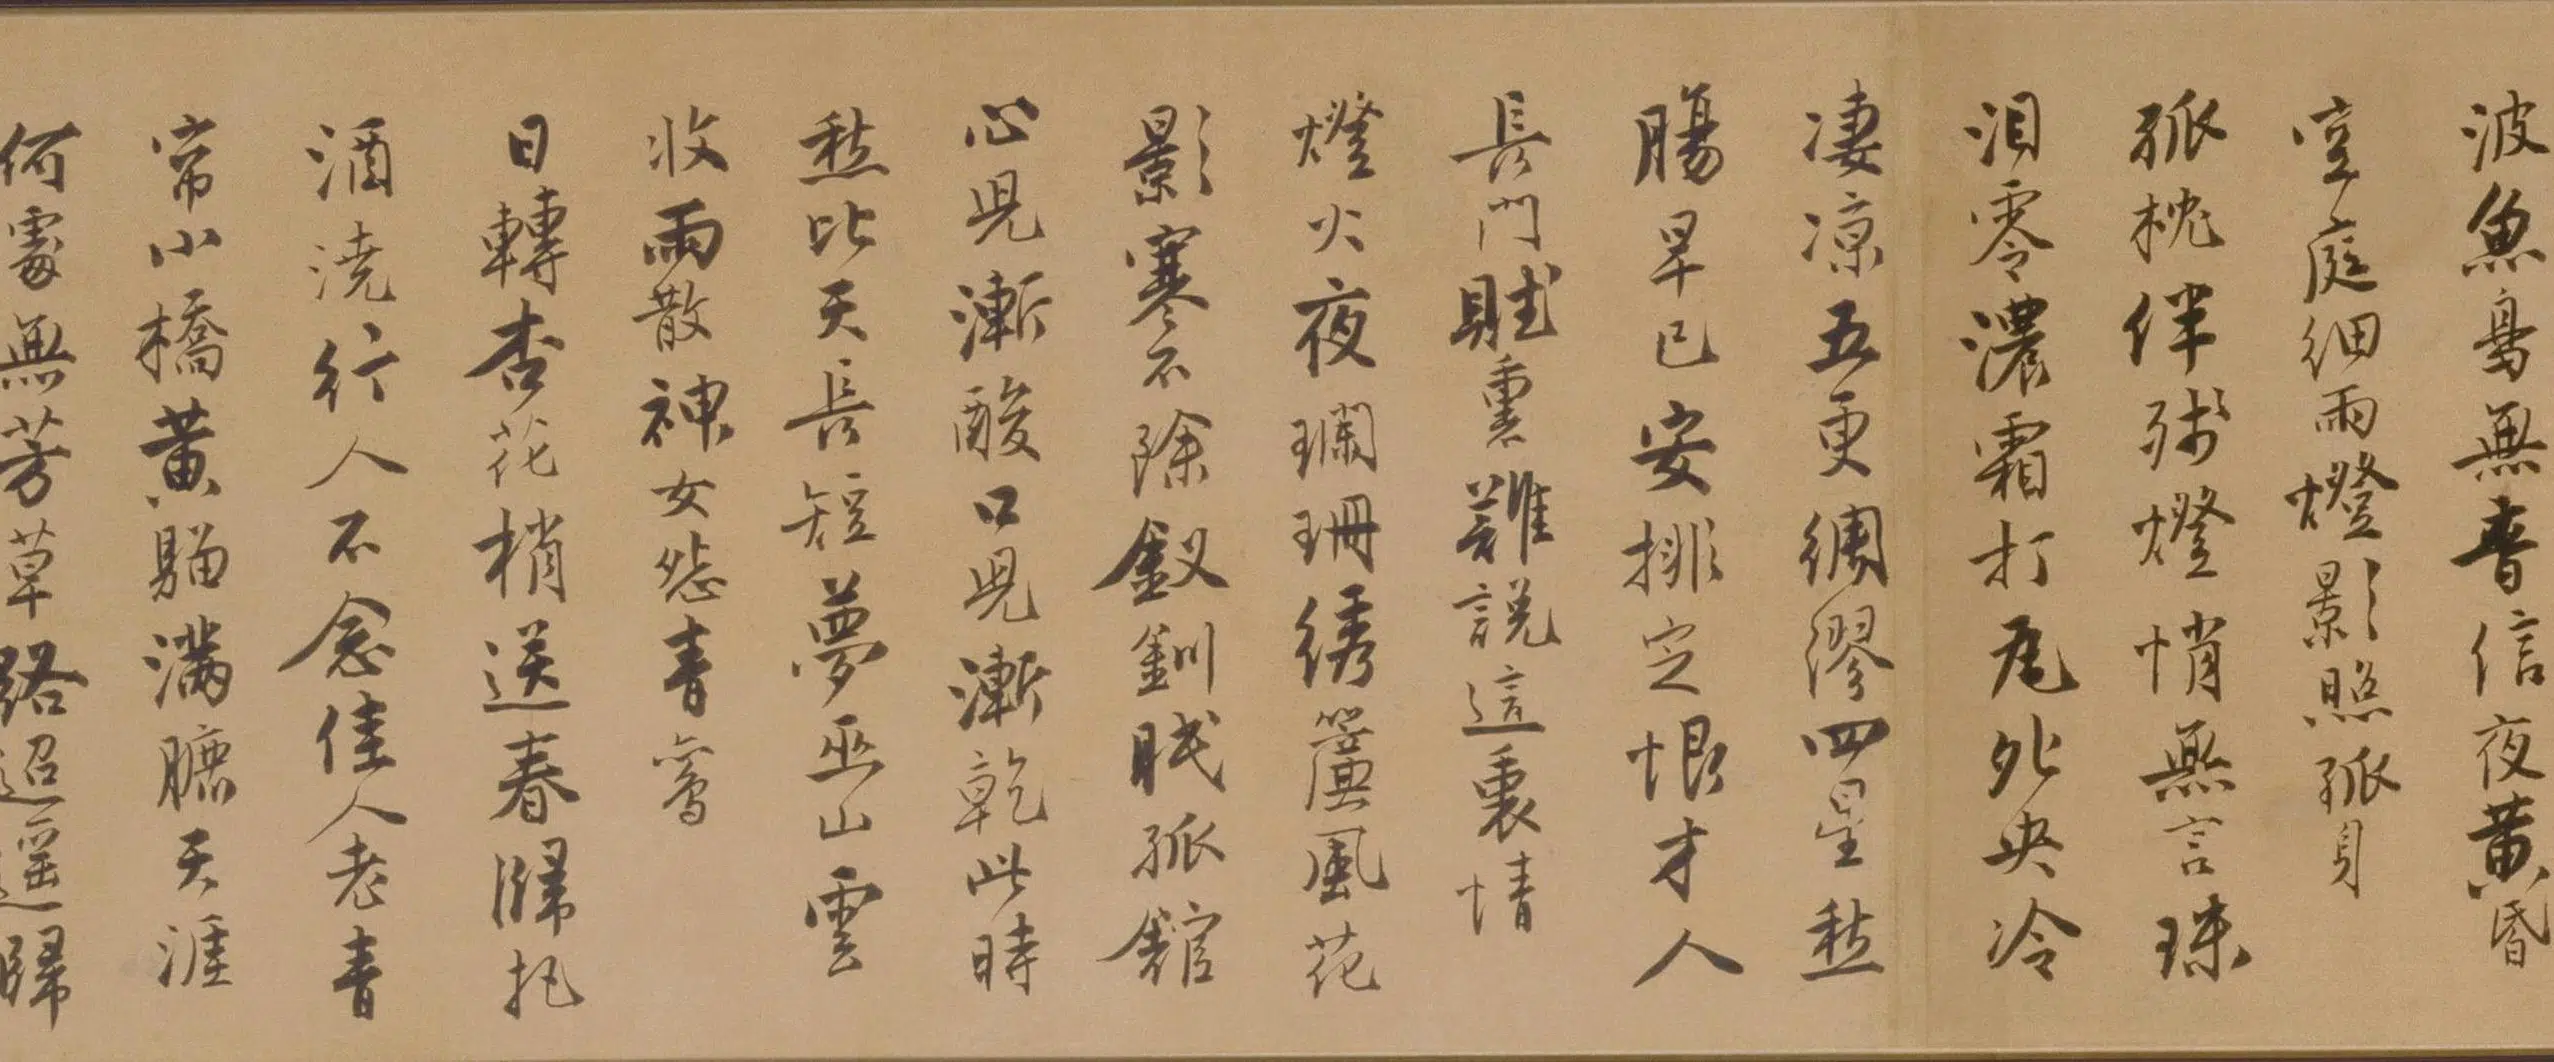 波魚鳥無音信夜黃昏
空庭細雨燈影照孤身
孤枕伴殘燈悄無言珠
淚零濃霜打瓦鴛央冷
凄涼五更綢繆四星愁
腸早已安排定恨才人
長門賦裏難說這裏情
燈火夜瓓珊绣簾風花
影寒不除釵釧眠孤舘
心兒漸酸口兒漸乾此時
愁比天長短夢巫山雲
收雨散神女怨青鸞
日轉杏花梢送春歸把
酒澆行人不念佳人老青
帘小橋黃騮滿臕天涯
何處無芳草路迢遥歸